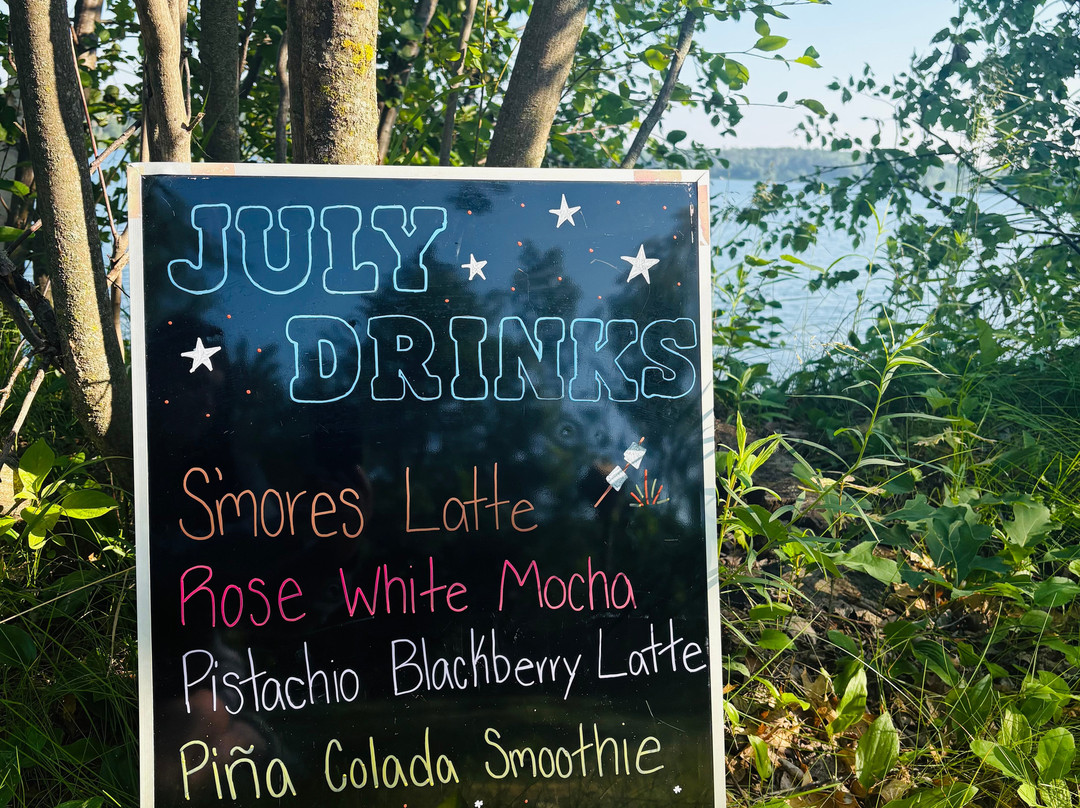 JULY
DRINKS
S'mores Latte
Rose White Mocha
Pistachio Blackberry Latte
Piña Colada Smoothie